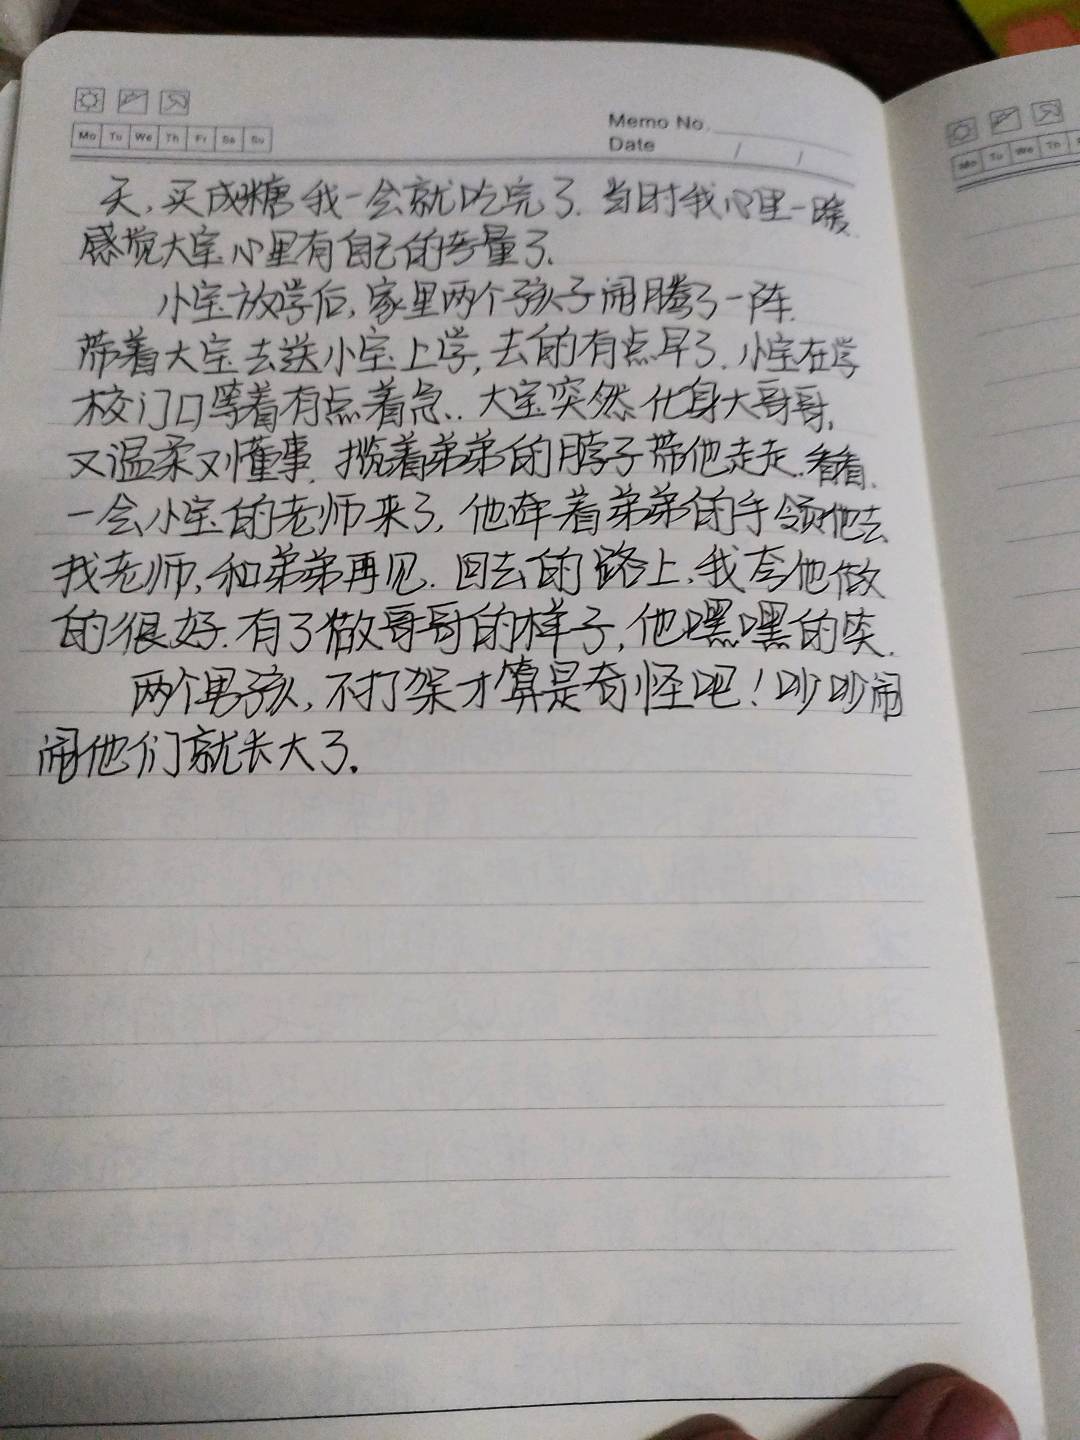 Memo No.
Date / /
Mo Tu We Th Fr Sa Su
Mo Tu We Th
天,买成糖我一会就吃完了.当时我心里一暖.
感觉大宝心里有自己的考量了.
小宝放学后,家里两个孩子闹腾了一阵.
带着大宝去送小宝上学,去的有点早了.小宝在学
校门口等着有点着急..大宝突然化身大哥哥,
又温柔又懂事.揽着弟弟的脖子带他走走.看看.
一会小宝的老师来了,他牵着弟弟的手领他去
找老师,和弟弟再见.回去的路上,我夸他做
的很好.有了做哥哥的样子,他嘿嘿的笑.
两个男孩,不打架才算是奇怪吧!吵吵闹
闹他们就长大了.